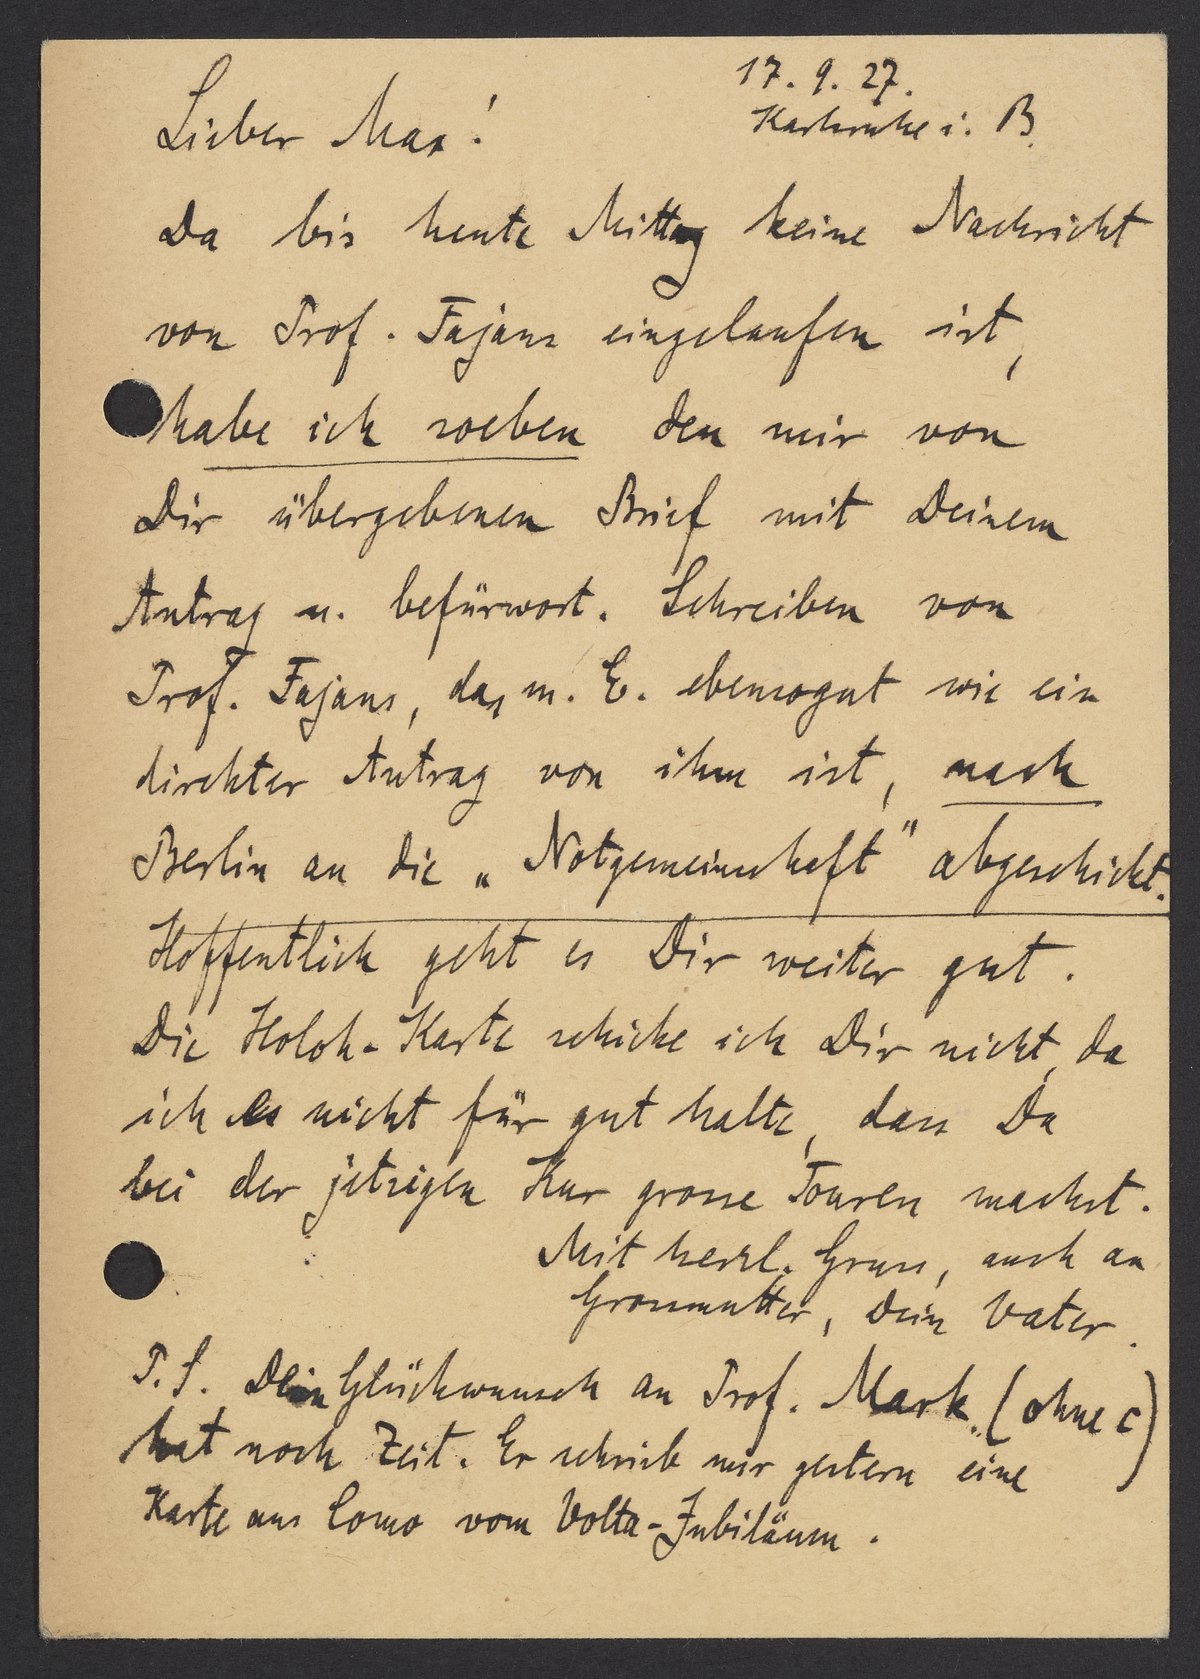 17. 9. 27.
Karlsruhe i. B.
Lieber Max!
Da bis heute Mittag keine Nachricht
von Prof. Fajans eingelaufen ist,
habe ich soeben den mir von
Dir übergebenen Brief mit Deinem
Antrag u. befürwort. Schreiben von
Prof. Fajans, das m. E. ebensogut wie ein
direkter Antrag von ihm ist, nach
Berlin an die „Notgemeinschaft" abgeschickt.
Hoffentlich geht es Dir weiter gut.
Die Holoh-Karte schicke ich Dir nicht, da
ich es nicht für gut halte, dass Du
bei der jetzigen Kur grosse Touren machst.
Mit herzl. Gruss, auch an
Grossmutter, Dein Vater.
P.S. Dein Glückwunsch an Prof. Mark (ohne c)
hat noch Zeit. Er schrieb mir gestern eine
Karte aus Como vom Volta-Jubiläum.